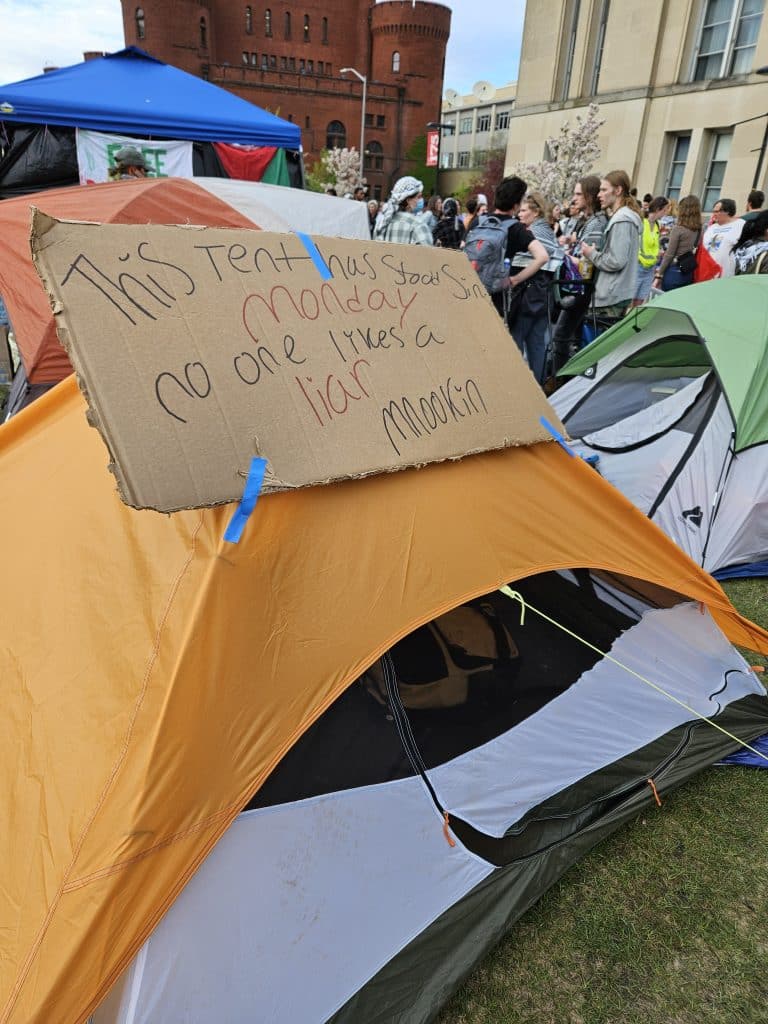 FREE
This Tent has stood Sin
Monday
no one likes a
liar
MNOOKIN